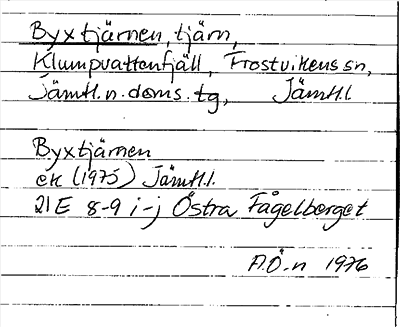 Byxtjärnen, tjärn,
Klumpvattenfjäll, Frostvikens sn,
Jämtl.n.doms.tg, Jämtl.l
Byxtjärnen
ek (1975) Jämtl.l.
21E 8-9 i-j Östra Fågelberget
A.Ö-n 1976